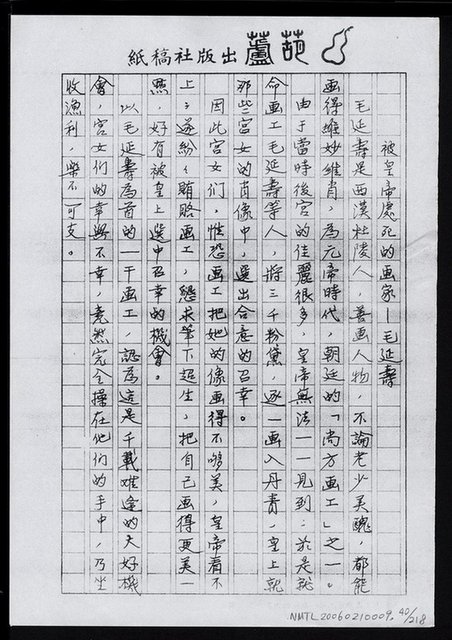 葫蘆出版社稿紙
被皇帝處死的画家—毛延壽
毛延壽是西漢杜陵人，善画人物，不論老少美醜，都能
画得維妙維肖，為元帝時代，朝廷的「尚方画工」之一。
由于當時後宮的佳麗很多，皇帝無法一一見到，於是就
命画工毛延壽等人，將三千粉黛，逐一画入丹青，皇上就
那些宮女的肖像中，選出合意的召幸。
因此宮女们，惟恐画工把她的像画得不夠美，皇帝看不
上，遂紛紛賄賂画工，懇求筆下超生，把自己画得更美一
點，好有被皇上選中召幸的機會。
以毛延壽為首的一干画工，認為這是千載难逢的大好機
會，宮女们的幸與不幸，竟然完全操在他们的手中，乃坐
收漁利，樂不可支。
NMTL20060210009. 40/218